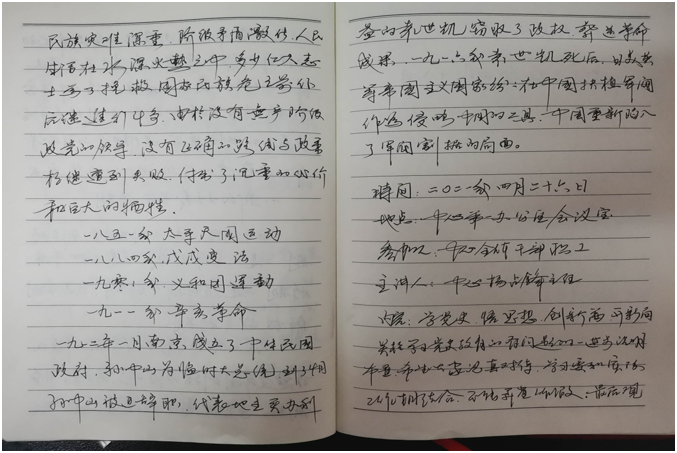 民族灾难深重,阶级矛盾激化,人民
生活在水深火热之中,多少仁人志
士为了挽救国家民族危亡前仆
后继进行斗争,由于没有无产阶级
政党的领导,没有正确的路线与政策
相继遭到失败,付出了沉重的代价
和巨大的牺牲。
一八五一年太平天国运动
一八八四年戊戌变法
一九零〇年义和团运动
一九一一年辛亥革命
一九一二年一月南京成立了中华民国
政府,孙中山为临时大总统,到了4月
孙中山被迫辞职,代表地主买办利
益的袁世凯窃取了政权,葬送革命
成果,一九一六年袁世凯死后,日英美
等帝国主义国家纷纷在中国扶植军阀
作为侵略中国的工具,中国重新陷入
了军阀割据的局面。
时间:二〇二一年四月二十六日
地点:中心第一办公室会议室
参加人:中心全体干部职工
主讲人:中心杨占锋主任
内容:学党史 悟思想 创新篇 开新局
关于学习党史教育的有问题的进一步说明
大家认真对待,学习要和
结合,不能弄虚作假,最后观